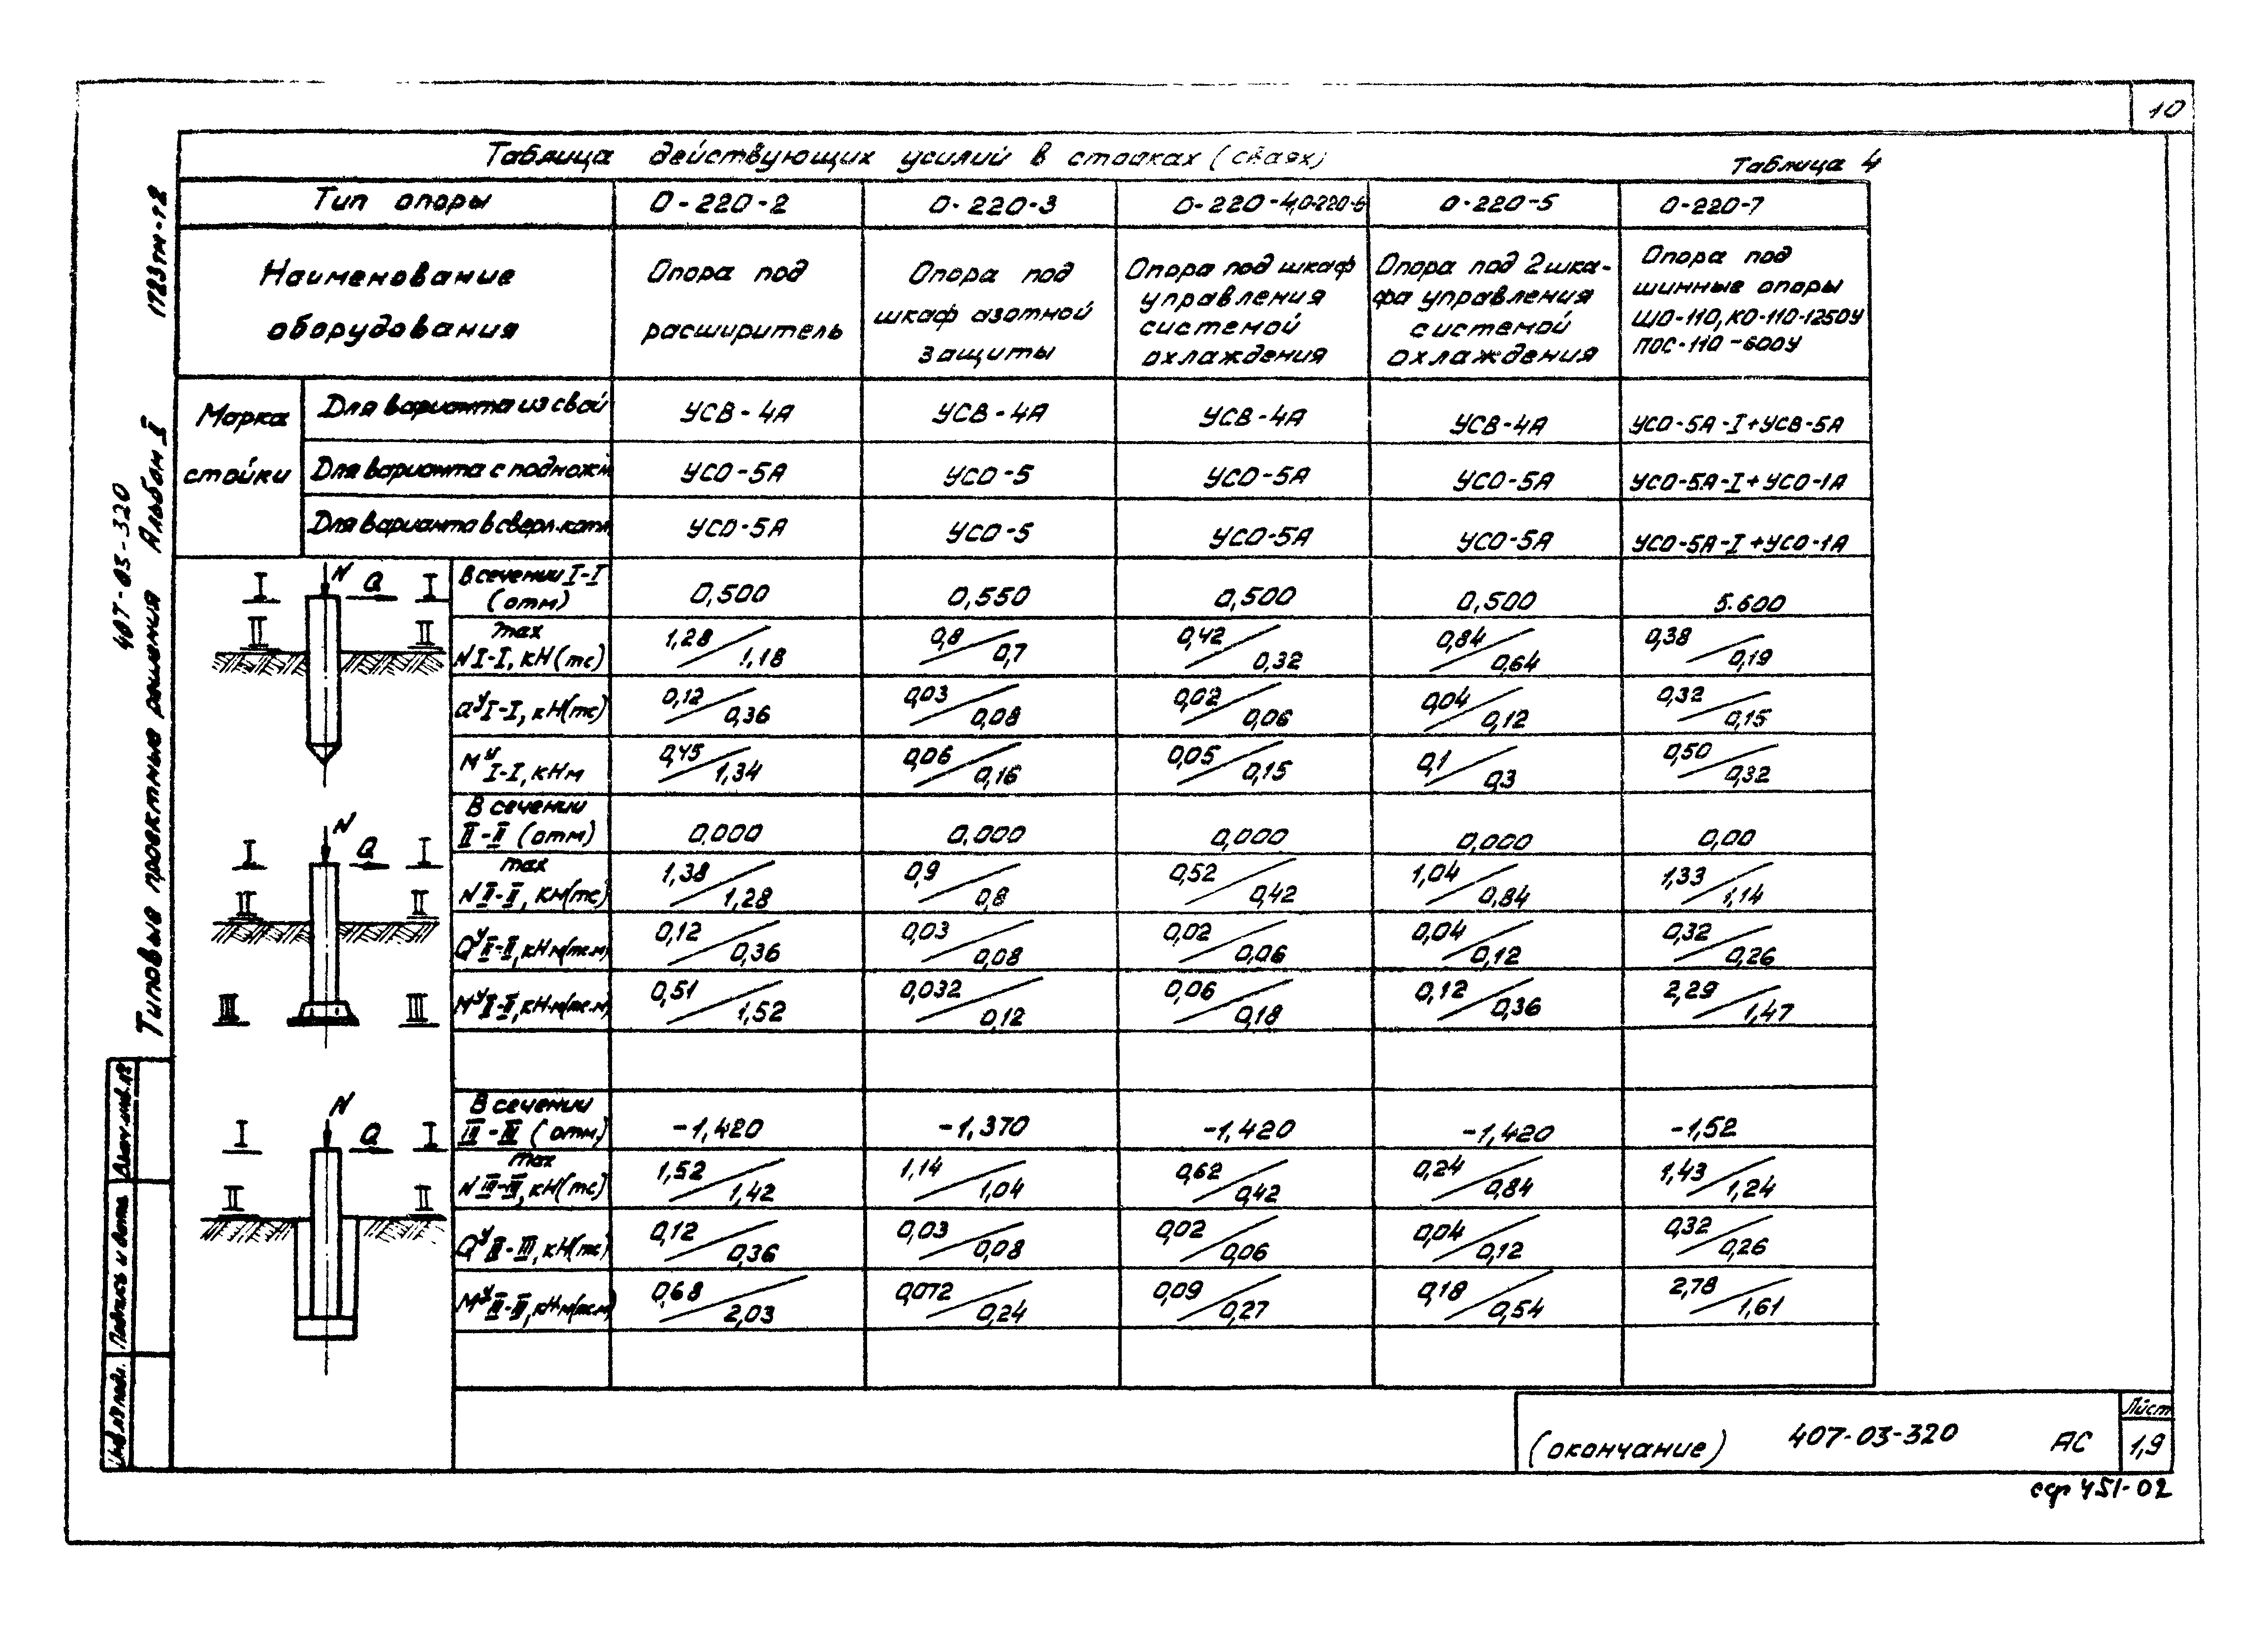 10
Таблица действующих усилий в стойках (сваях)
Таблица 4
Тип опоры О-220-2 О-220-3 О-220-4,О-220-6 О-220-5 О-220-7
Наименование оборудования
Опора под расширитель
Опора под шкаф азотной защиты
Опора под шкаф управления системой охлаждения
Опора под 2 шка-
фа управления системой охлаждения
Опора под шинные опоры ШО-110, КО-110-1250У ПОС-110-600У
Марка стойки
Для варианта из свай УСВ-4А УСВ-4А УСВ-4А УСВ-4А УСО-5А-I+УСВ-5А
Для варианта с поднож УСО-5А УСО-5 УСО-5А УСО-5А УСО-5А-I+УСО-1А
Для варианта в сверл.котл УСО-5А УСО-5 УСО-5А УСО-5А УСО-5А-I+УСО-1А
В сечении I-I (отм) 0,500 0,550 0,500 0,500 5.600
max N I-I, кН(тс) 1,28/1,18 0,8/0,7 0,42/0,32 0,84/0,64 0,38/0,19
QУ I-I, кН(тс) 0,12/0,36 0,03/0,08 0,02/0,06 0,04/0,12 0,32/0,15
МУ I-I, кНм 0,45/1,34 0,06/0,16 0,05/0,15 0,1/0,3 0,50/0,32
В сечении II-II (отм) 0,000 0,000 0,000 0,000 0,00
max N II-II, кН(тс) 1,38/1,28 0,9/0,8 0,52/0,42 1,04/0,84 1,33/1,14
QУ II-II, кН м(тс.м) 0,12/0,36 0,03/0,08 0,02/0,06 0,04/0,12 0,32/0,26
МУ II-II, кН.м(тс.м) 0,51/1,52 0,032/0,12 0,06/0,18 0,12/0,36 2,29/1,47
В сечении III-III (отм.) -1,420 -1,370 -1,420 -1,420 -1,52
max N III-III, кН(тс) 1,52/1,42 1,14/1,04 0,62/0,42 0,24/0,84 1,43/1,24
QУ III-III, кН(тс) 0,12/0,36 0,03/0,08 0,02/0,06 0,04/0,12 0,32/0,26
МУ III-III, кН м(тс.м) 0,68/2,03 0,072/0,24 0,09/0,27 0,18/0,54 2,78/1,61
N Q I I II II
N Q I I II II III III
N Q I I II II
1723тм-т2
407-03-320
Типовые проектные решения Альбом II
Взам.инв.№
Подпись и дата
Инв.№ подл.
(окончание) 407-03-320 АС
Лист
1,9
сф 451-02